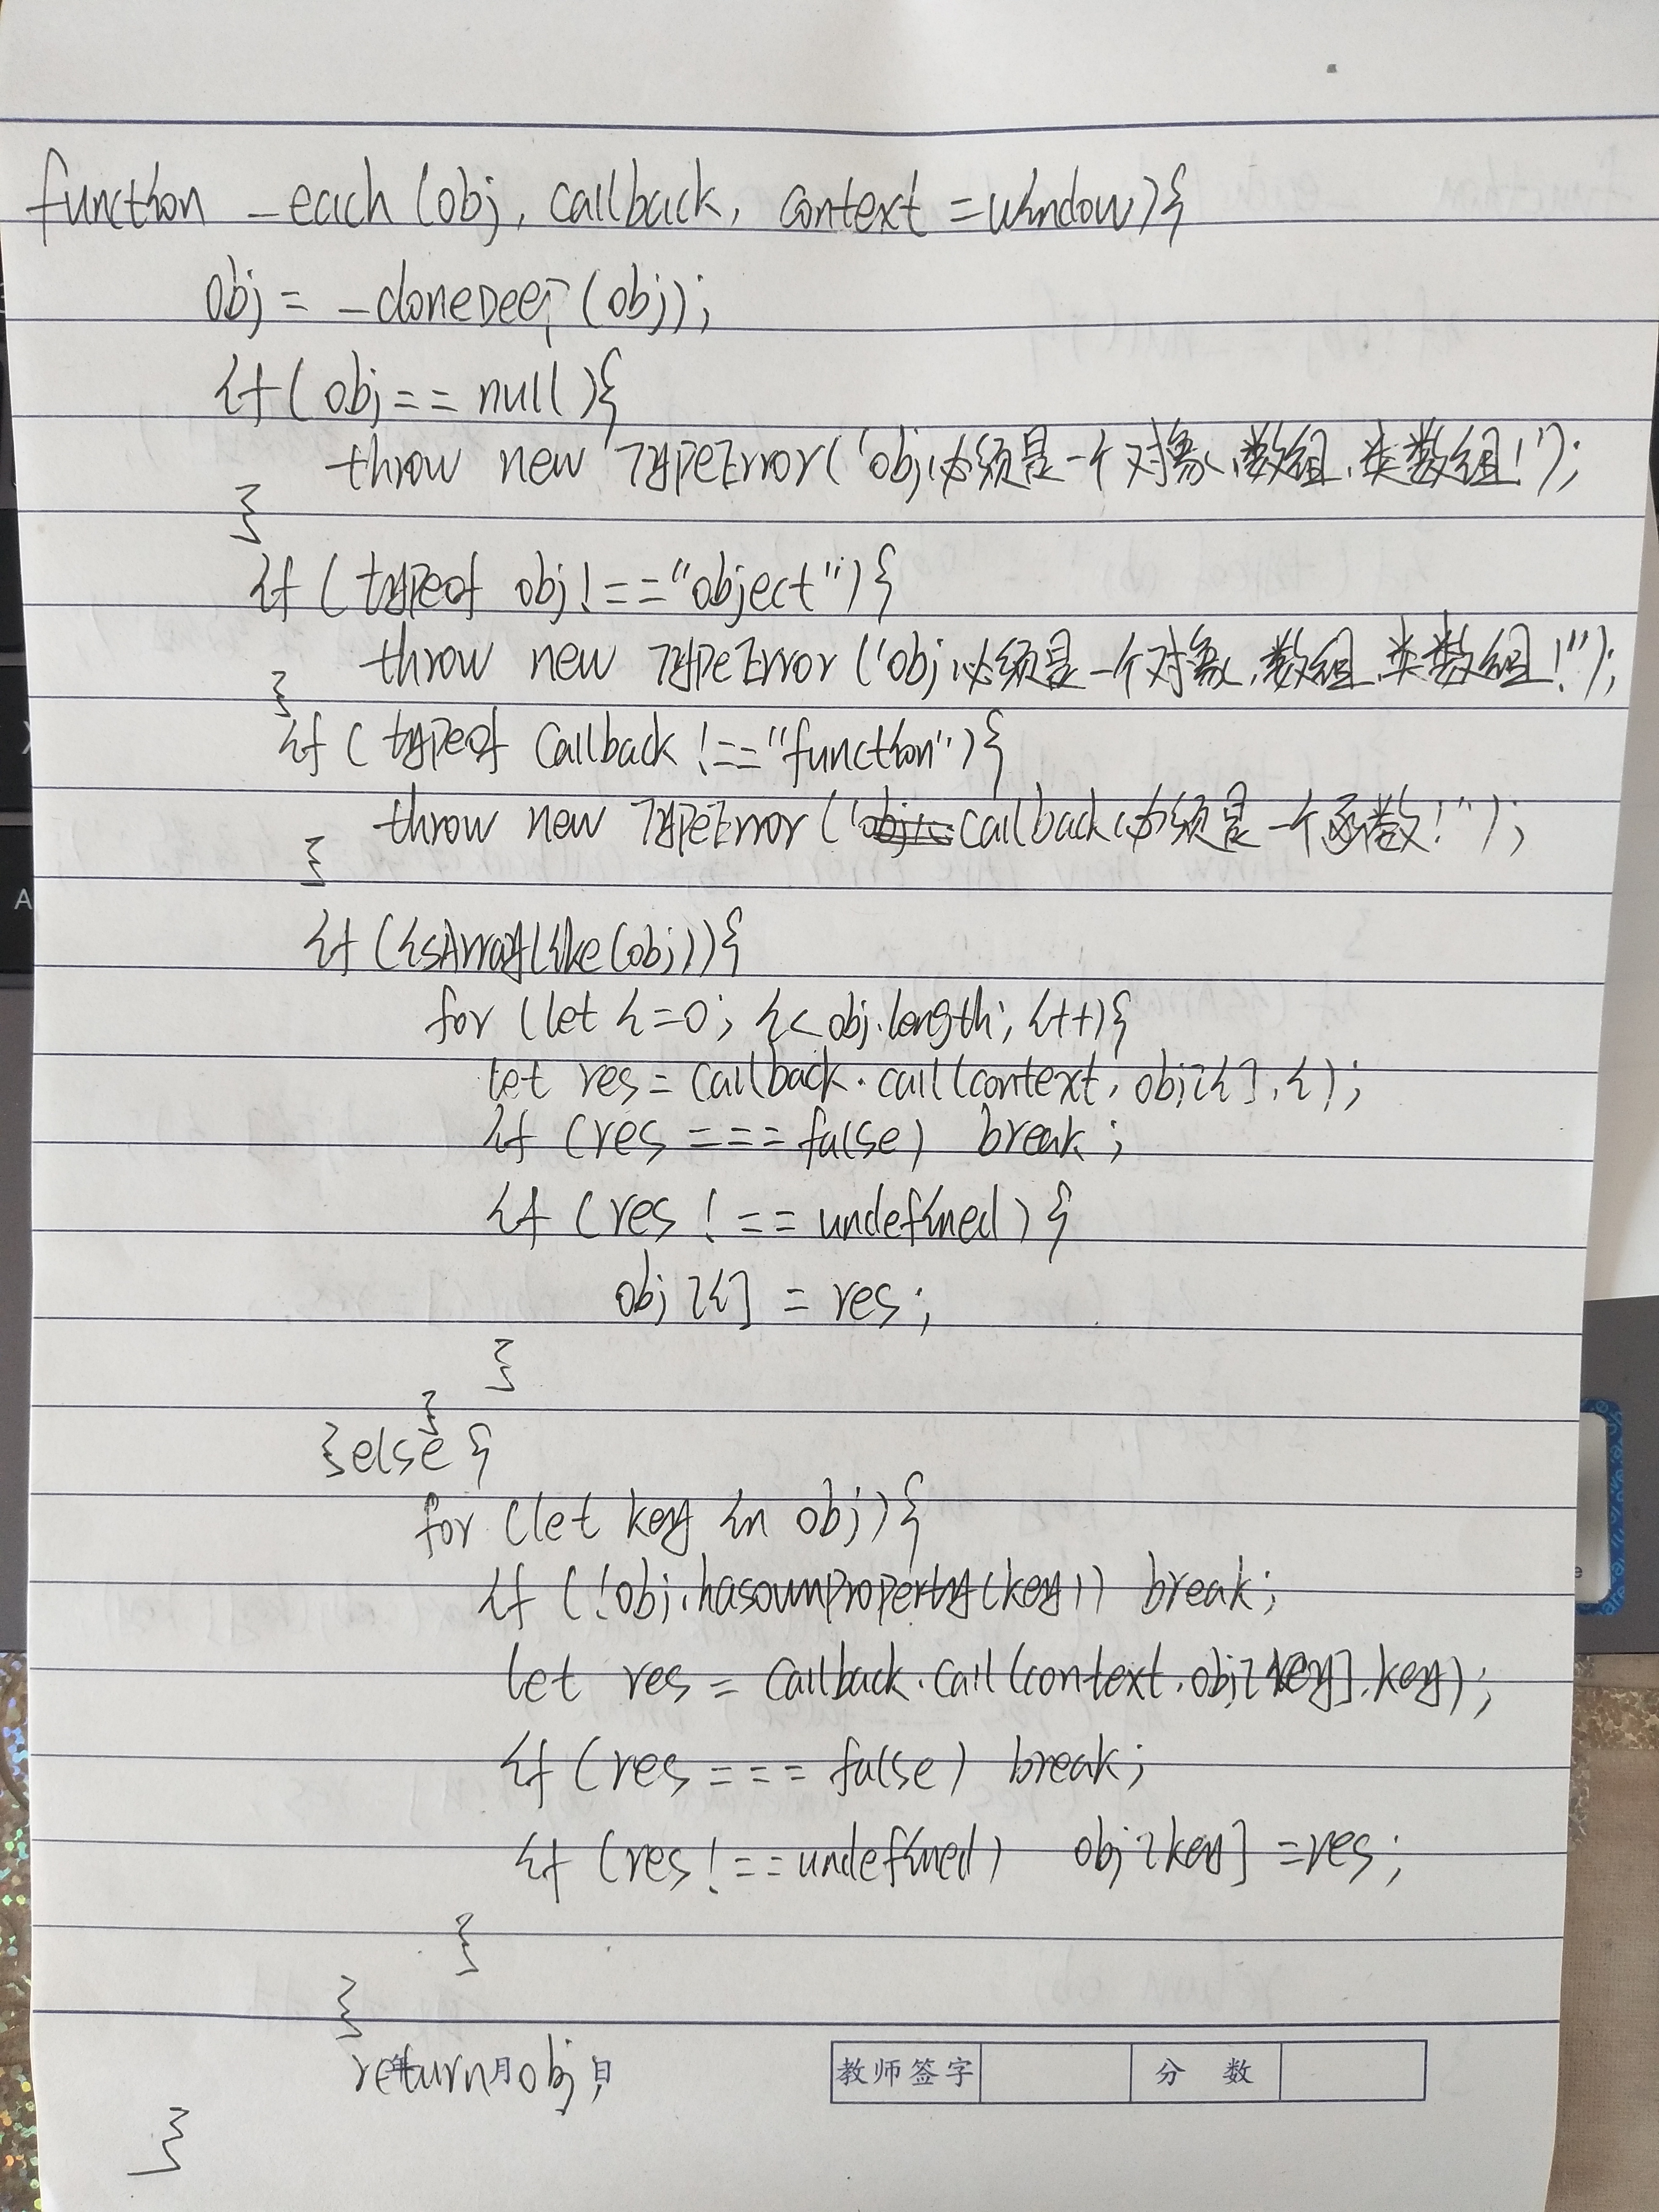 function _each (obj, callback, context = window){
obj = _cloneDeep (obj);
if ( obj == null ){
throw new TypeError( 'obj必须是一个对象、数组、类数组!');
}
if ( typeof obj !== "object"){
throw new TypeError ('obj必须是一个对象、数组、类数组!'');
}
if ( typeof callback !== "function"){
throw new TypeError ('callback必须是一个函数!'');
}
if (isArrayLike(obj)){
for (let i=0; i< obj.length; i++){
let res = callback.call(context, obj[i], i);
if (res === false) break;
if (res !== undefined) {
obj[i] = res;
}
}
}else {
for (let key in obj){
if (!obj.hasownProperty(key)) break;
let res = callback.call(context, obj[key], key);
if (res === false) break;
if (res !== undefined) obj[key] = res;
}
}
return obj;
年 月 日
教师签字 分 数
}
A